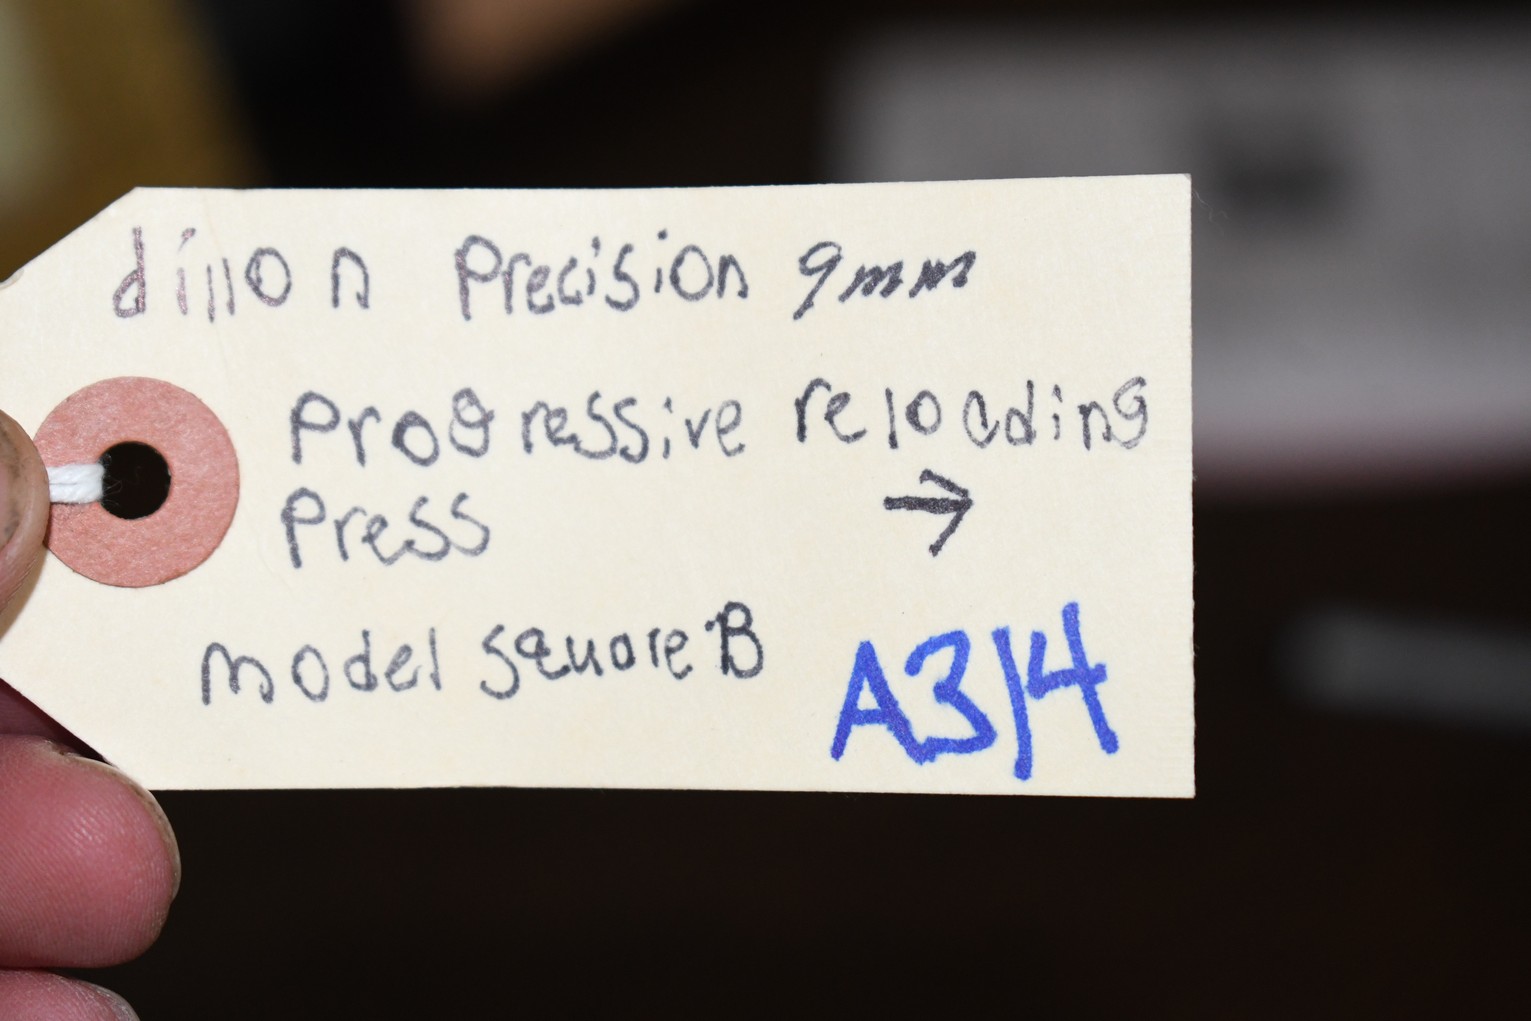 dillon Precision 9mm
Progressive reloading
Press →
model square B
A314